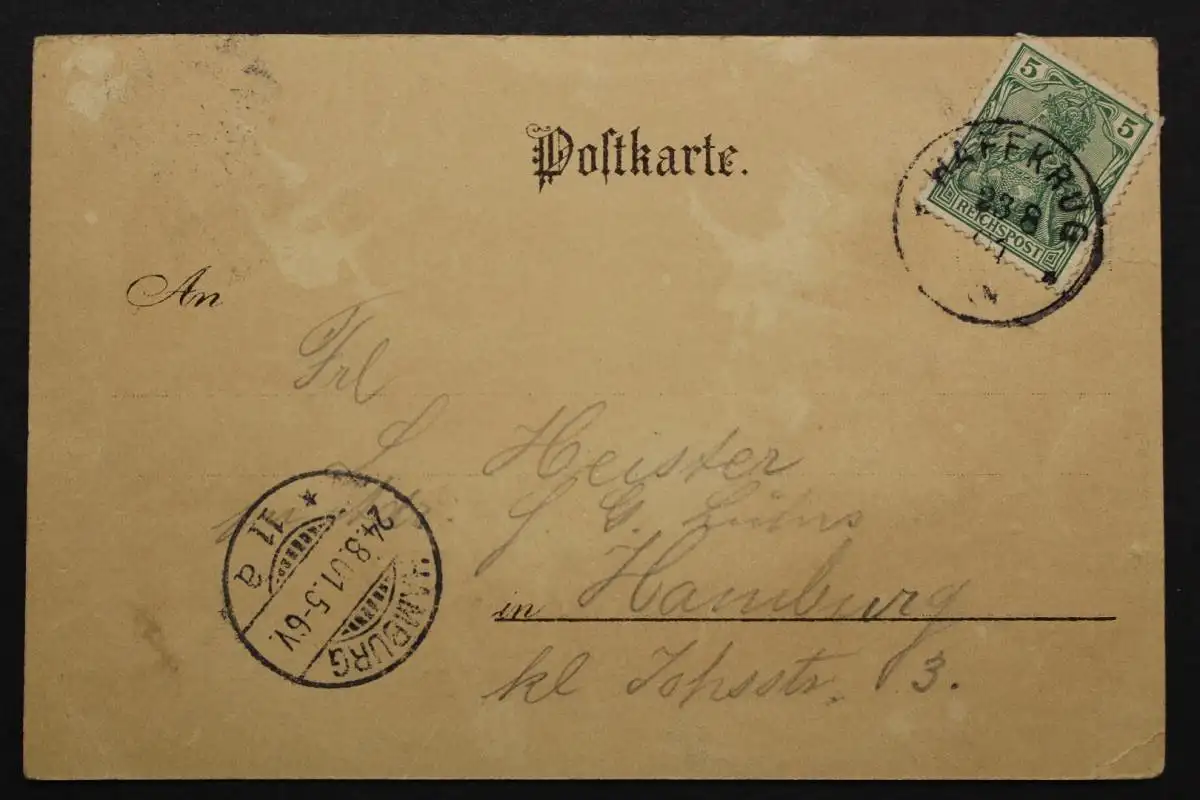 Postkarte.
5 5
REICHSPOST
HAFFKRUG
23 8
An
Frl
Heister
in Hamburg
kl 3.
HAMBURG
24.8.01.5-6V.
* 11 a